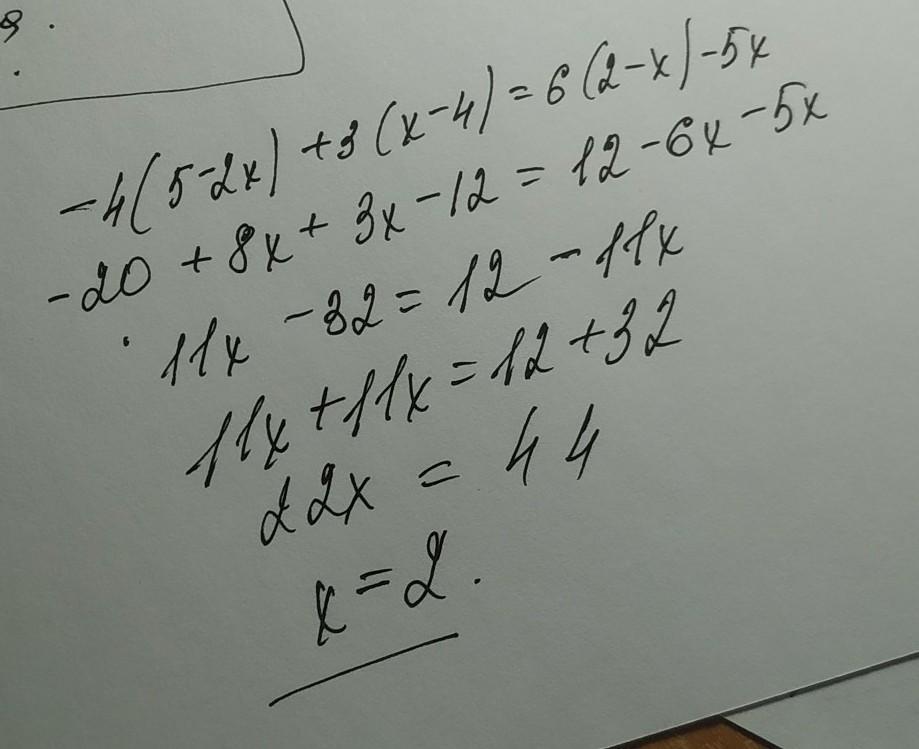 9.
.
-4(5-2x)+3(x-4)=6(2-x)-5x
-20+8x+3x-12=12-6x-5x
11x-32=12-11x
11x+11x=12+32
22x=44
x=2.